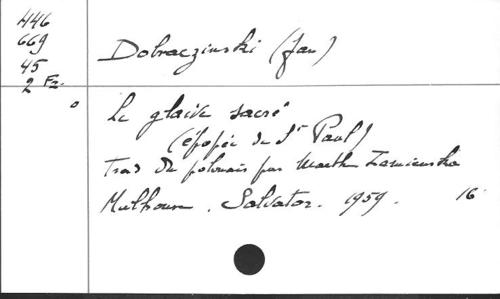 446
669
45
2 Fz.
Dobraczinski (Jan)
Le glaive sacré
(épopée de St Paul)
Trad du polonais par Marthe Zamienska
Mulhouse. Salvator. 1959. 16